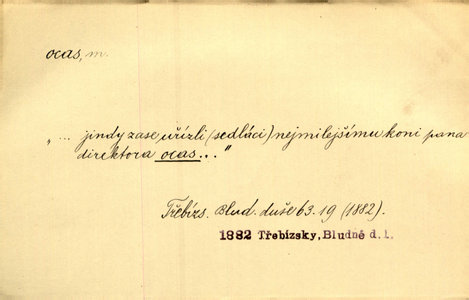 ocas, m.
„... jindy zase uřízli (sedláci) nejmilejšímu koni pana
direktora ocas..."
Třebízs. Blud. duše 63. 19 (1882).
1882 Třebízsky, Bludné d. 1.